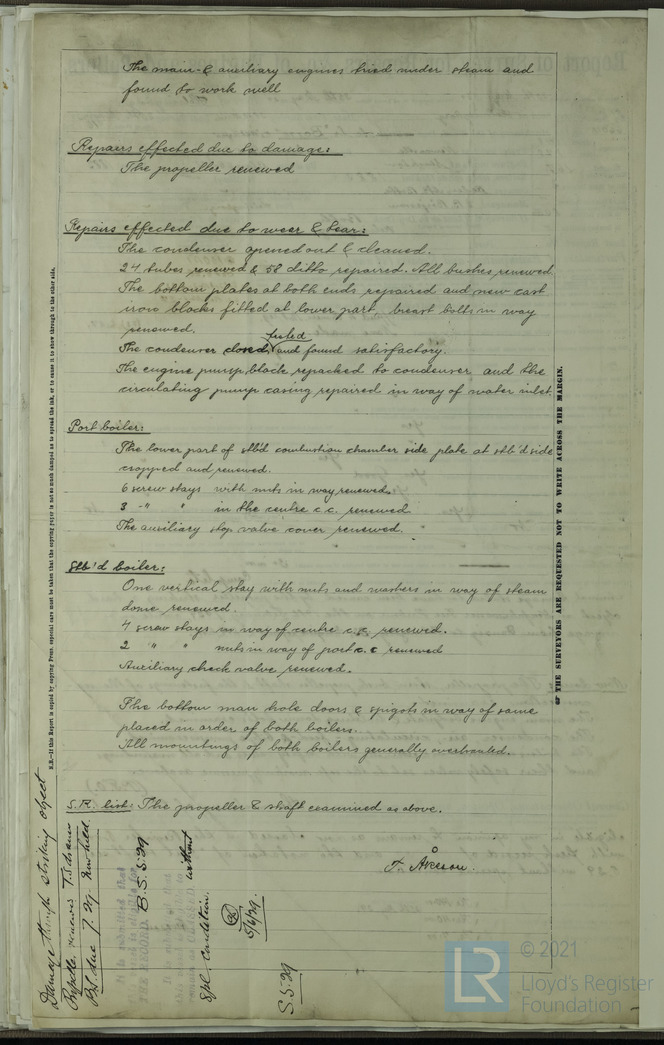 The main & auxiliary engines tried under steam and
found to work well
Repairs effected due to damage:
The propeller renewed
Repairs effected due to wear & tear:
The condenser opened out & cleaned.
24 tubes renewed & 58 ditto repaired. All bushes renewed
The bottom plates at both ends repaired and new cast
iron blocks fitted at lower part, breast bolts in way
renewed.
The condenser closed, tested and found satisfactory.
The engine pump block repacked to condenser and the
circulating pump casing repaired in way of water inlet.
Port boiler:
The lower part of stb'd combustion chamber side plate at stb'd side
cropped and renewed.
6 screw stays with nuts in way renewed.
3 -"- " in the centre c.c. renewed
The auxiliary stop valve cover renewed.
Stb'd boiler:
One vertical stay with nuts and washers in way of steam
dome renewed.
4 screw stays in way of centre c.c. renewed.
2 " " nuts in way of port c.c renewed
Auxiliary check valve renewed.
The bottom man hole doors & spigots in way of same
placed in order of both boilers.
All mountings of both boilers generally overhauled.
S.R. list: The propeller & shaft examined as above.
Damage through striking object
renewed
due 7.29. Now held.
It is submitted that
THE RECORD B.S. 5.29
without
Spl. condition.
5/6/29
S. 5.29
N.B.—If this Report is copied by copying Press, especial care must be taken that the copying paper is not so much damped as to spread the ink, or to cause it to show through to the other side.
THE SURVEYORS ARE REQUESTED NOT TO WRITE ACROSS THE MARGIN.
LR
© 2021
Lloyd's Register
Foundation